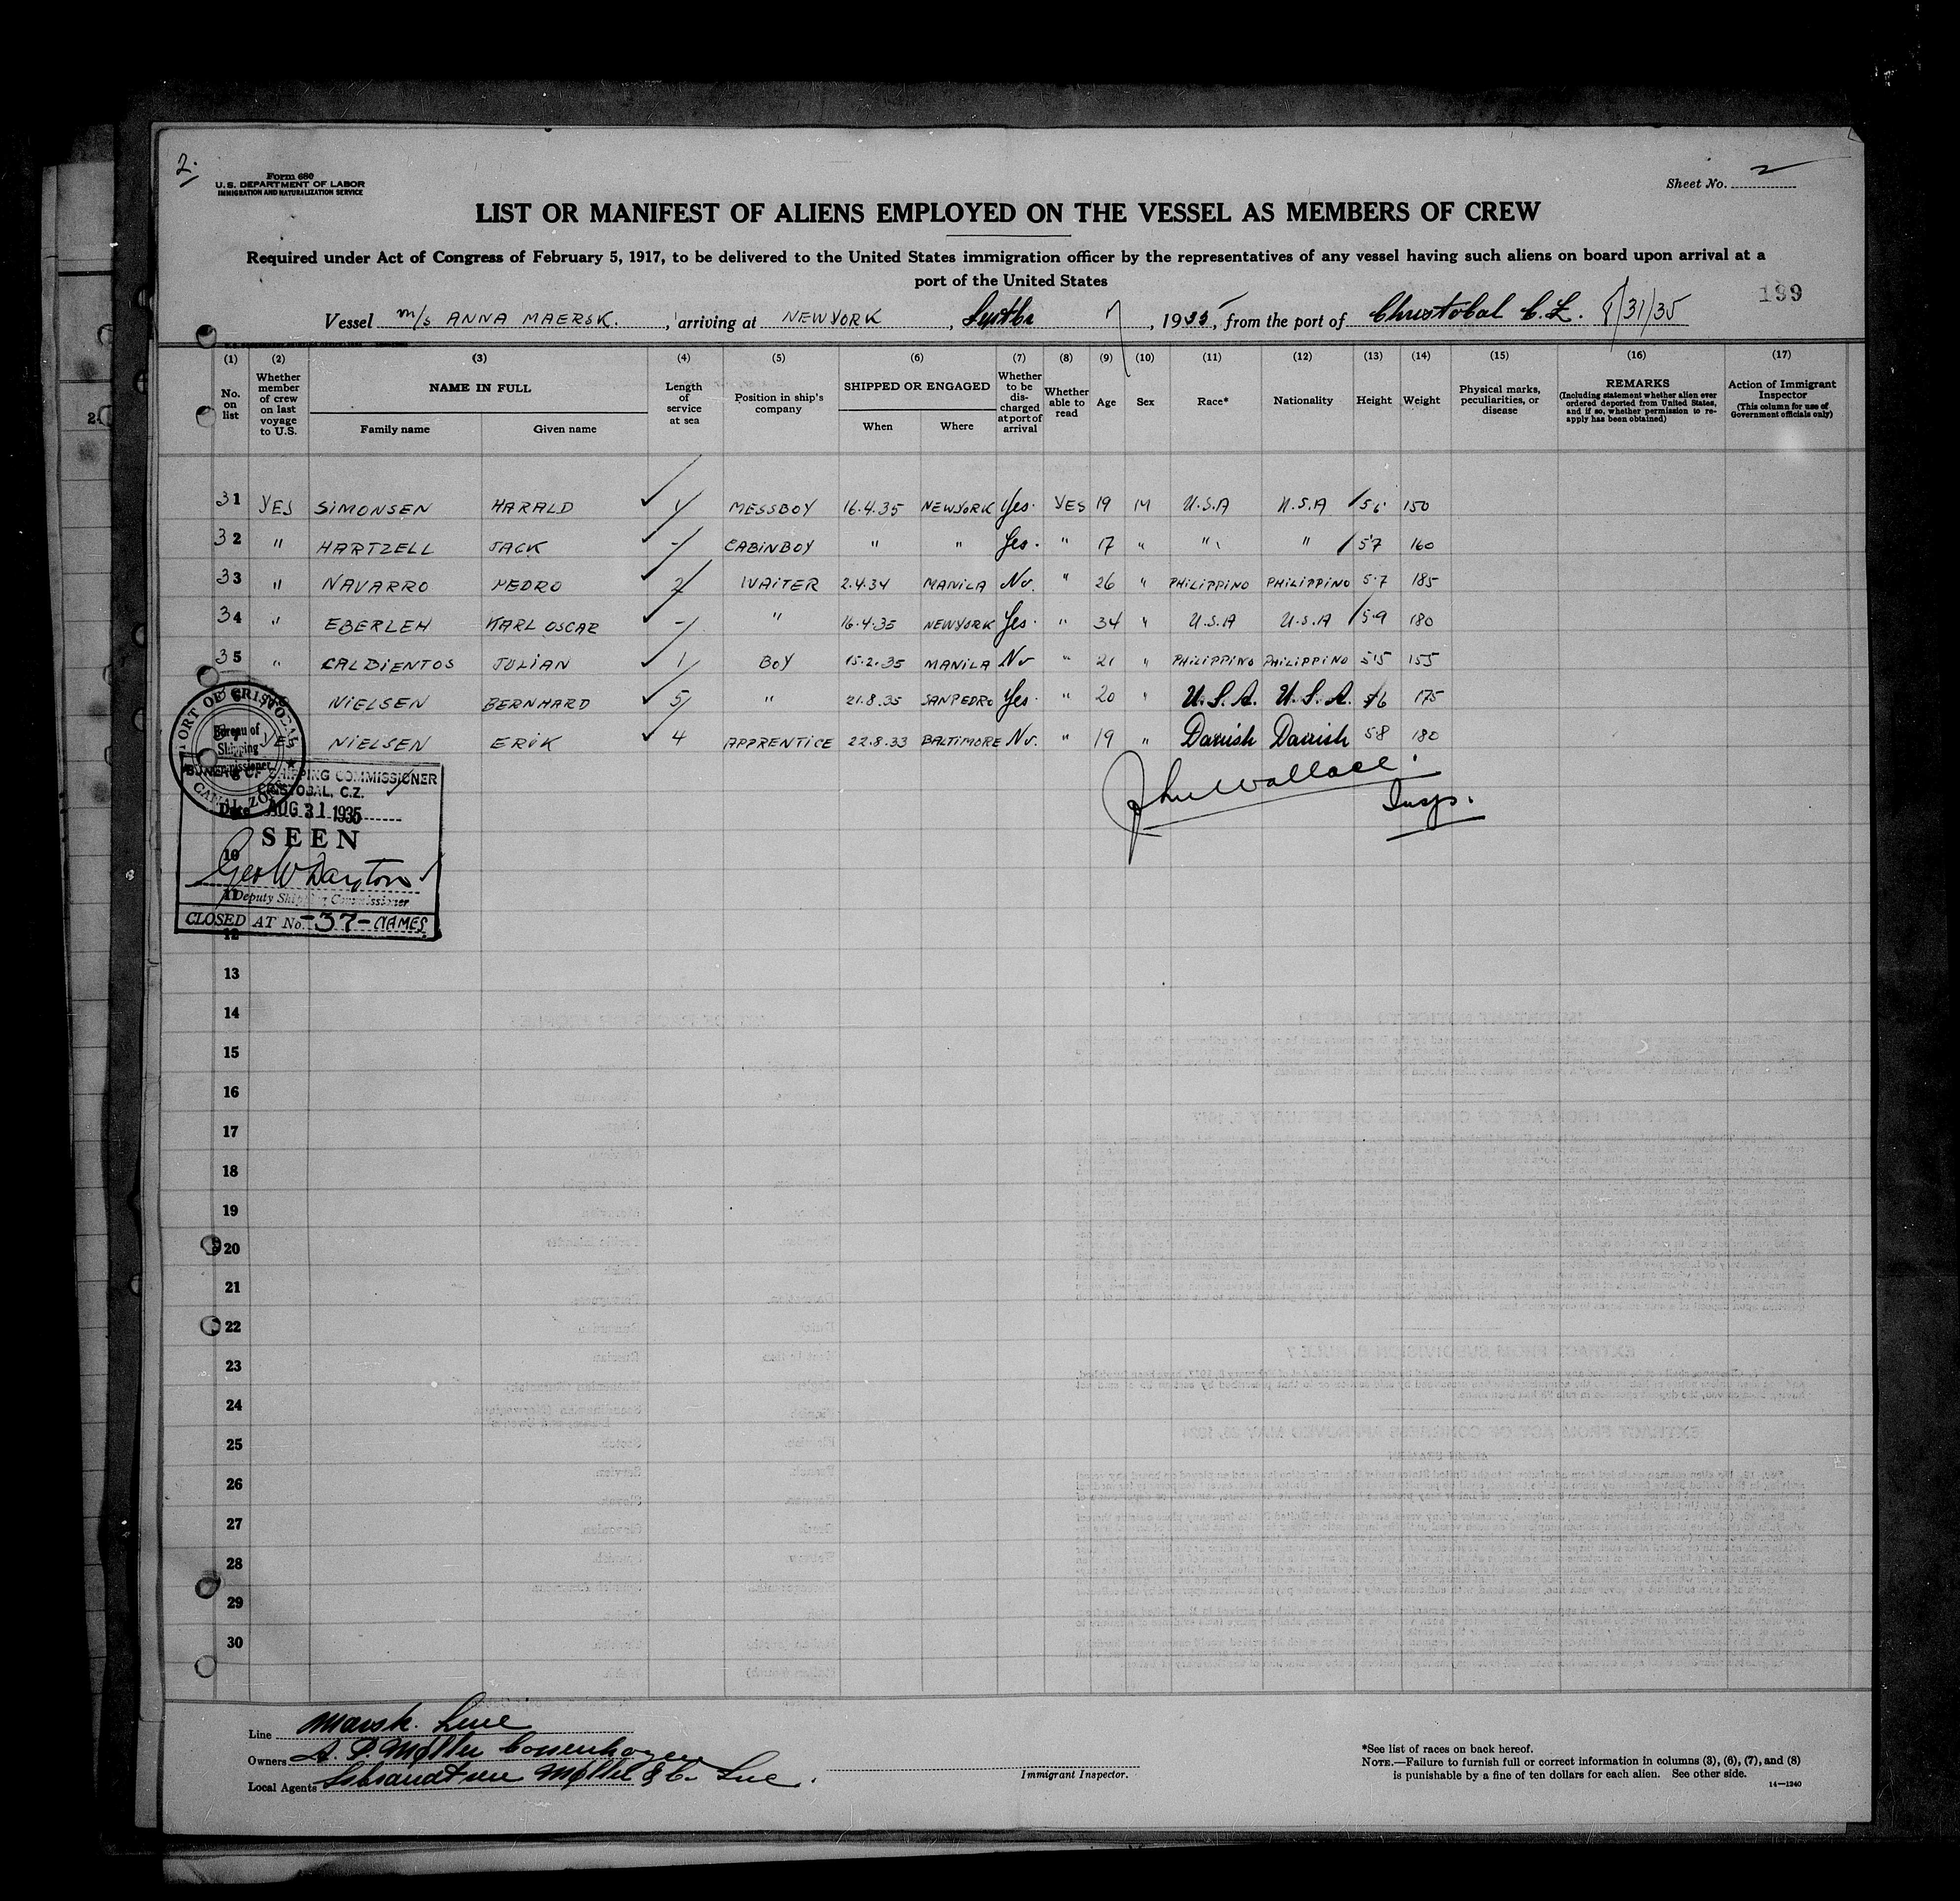 2.
Form 680
U. S. DEPARTMENT OF LABOR
IMMIGRATION AND NATURALIZATION SERVICE
Sheet No. 2
LIST OR MANIFEST OF ALIENS EMPLOYED ON THE VESSEL AS MEMBERS OF CREW
Required under Act of Congress of February 5, 1917, to be delivered to the United States immigration officer by the representatives of any vessel having such aliens on board upon arrival at a
port of the United States
199
Vessel m/s ANNA MAERSK. , arriving at NEWYORK , 7 , 1935, from the port of Christobal C.Z. 8/31/35
(1) (2) (3) (4) (5) (6) (7) (8) (9) (10) (11) (12) (13) (14) (15) (16) (17)
No. on list Whether member of crew on last voyage to U.S. NAME IN FULL Family name Given name Length of service at sea Position in ship's company SHIPPED OR ENGAGED When Where Whether to be discharged at port of arrival Whether able to read Age Sex Race* Nationality Height Weight Physical marks, peculiarities, or disease REMARKS (Including statement whether alien ever ordered deported from United States, and if so, whether permission to re-apply has been obtained) Action of Immigrant Inspector (This column for use of Government officials only)
31 YES SIMONSEN HARALD MESSBOY 16.4.35 NEWYORK Yes. YES 19 M U.S.A U.S.A 5.6 150
32 " HARTZELL JACK - CABINBOY " " Yes. " 17 " " " 5'7 160
33 " NAVARRO PEDRO 2 WAITER 2.4.34 MANILA No. " 26 " PHILIPPINO PHILIPPINO 5.7 185
34 " EBERLEH KARL OSCAR - " 16.4.35 NEWYORK Yes. " 34 " U.S.A U.S.A 5.9 180
35 " CALDIENTOS JULIAN 1 BOY 15.2.35 MANILA No " 21 " PHILIPPINO PHILIPPINO 5'5 155
NIELSEN BERNHARD 5 " 21.8.35 SANPEDRO Yes. " 20 " U.S.A. U.S.A. 175
YES NIELSEN ERIK 4 APPRENTICE 22.8.33 BALTIMORE No. " 19 " Danish Danish 5.8 180
John Wallace
Insp.
PORT OF CRISTOBAL
Bureau of
Shipping
Commissioner
CANAL ZONE
BUREAU OF SHIPPING COMMISSIONER
CRISTOBAL, C.Z.
Date AUG 31 1935
SEEN
10
Geo W Dayton
11 Deputy Shipping Commissioner
CLOSED AT No. -37- NAMES
12
13
14
15
16
17
18
19
20
21
22
23
24
25
26
27
28
29
30
Line Maersk Line
Owners A. P. Møller Copenhagen
Local Agents Møller & Co. Inc.
Immigrant Inspector.
*See list of races on back hereof.
NOTE.—Failure to furnish full or correct information in columns (3), (6), (7), and (8)
is punishable by a fine of ten dollars for each alien. See other side.
14—1240